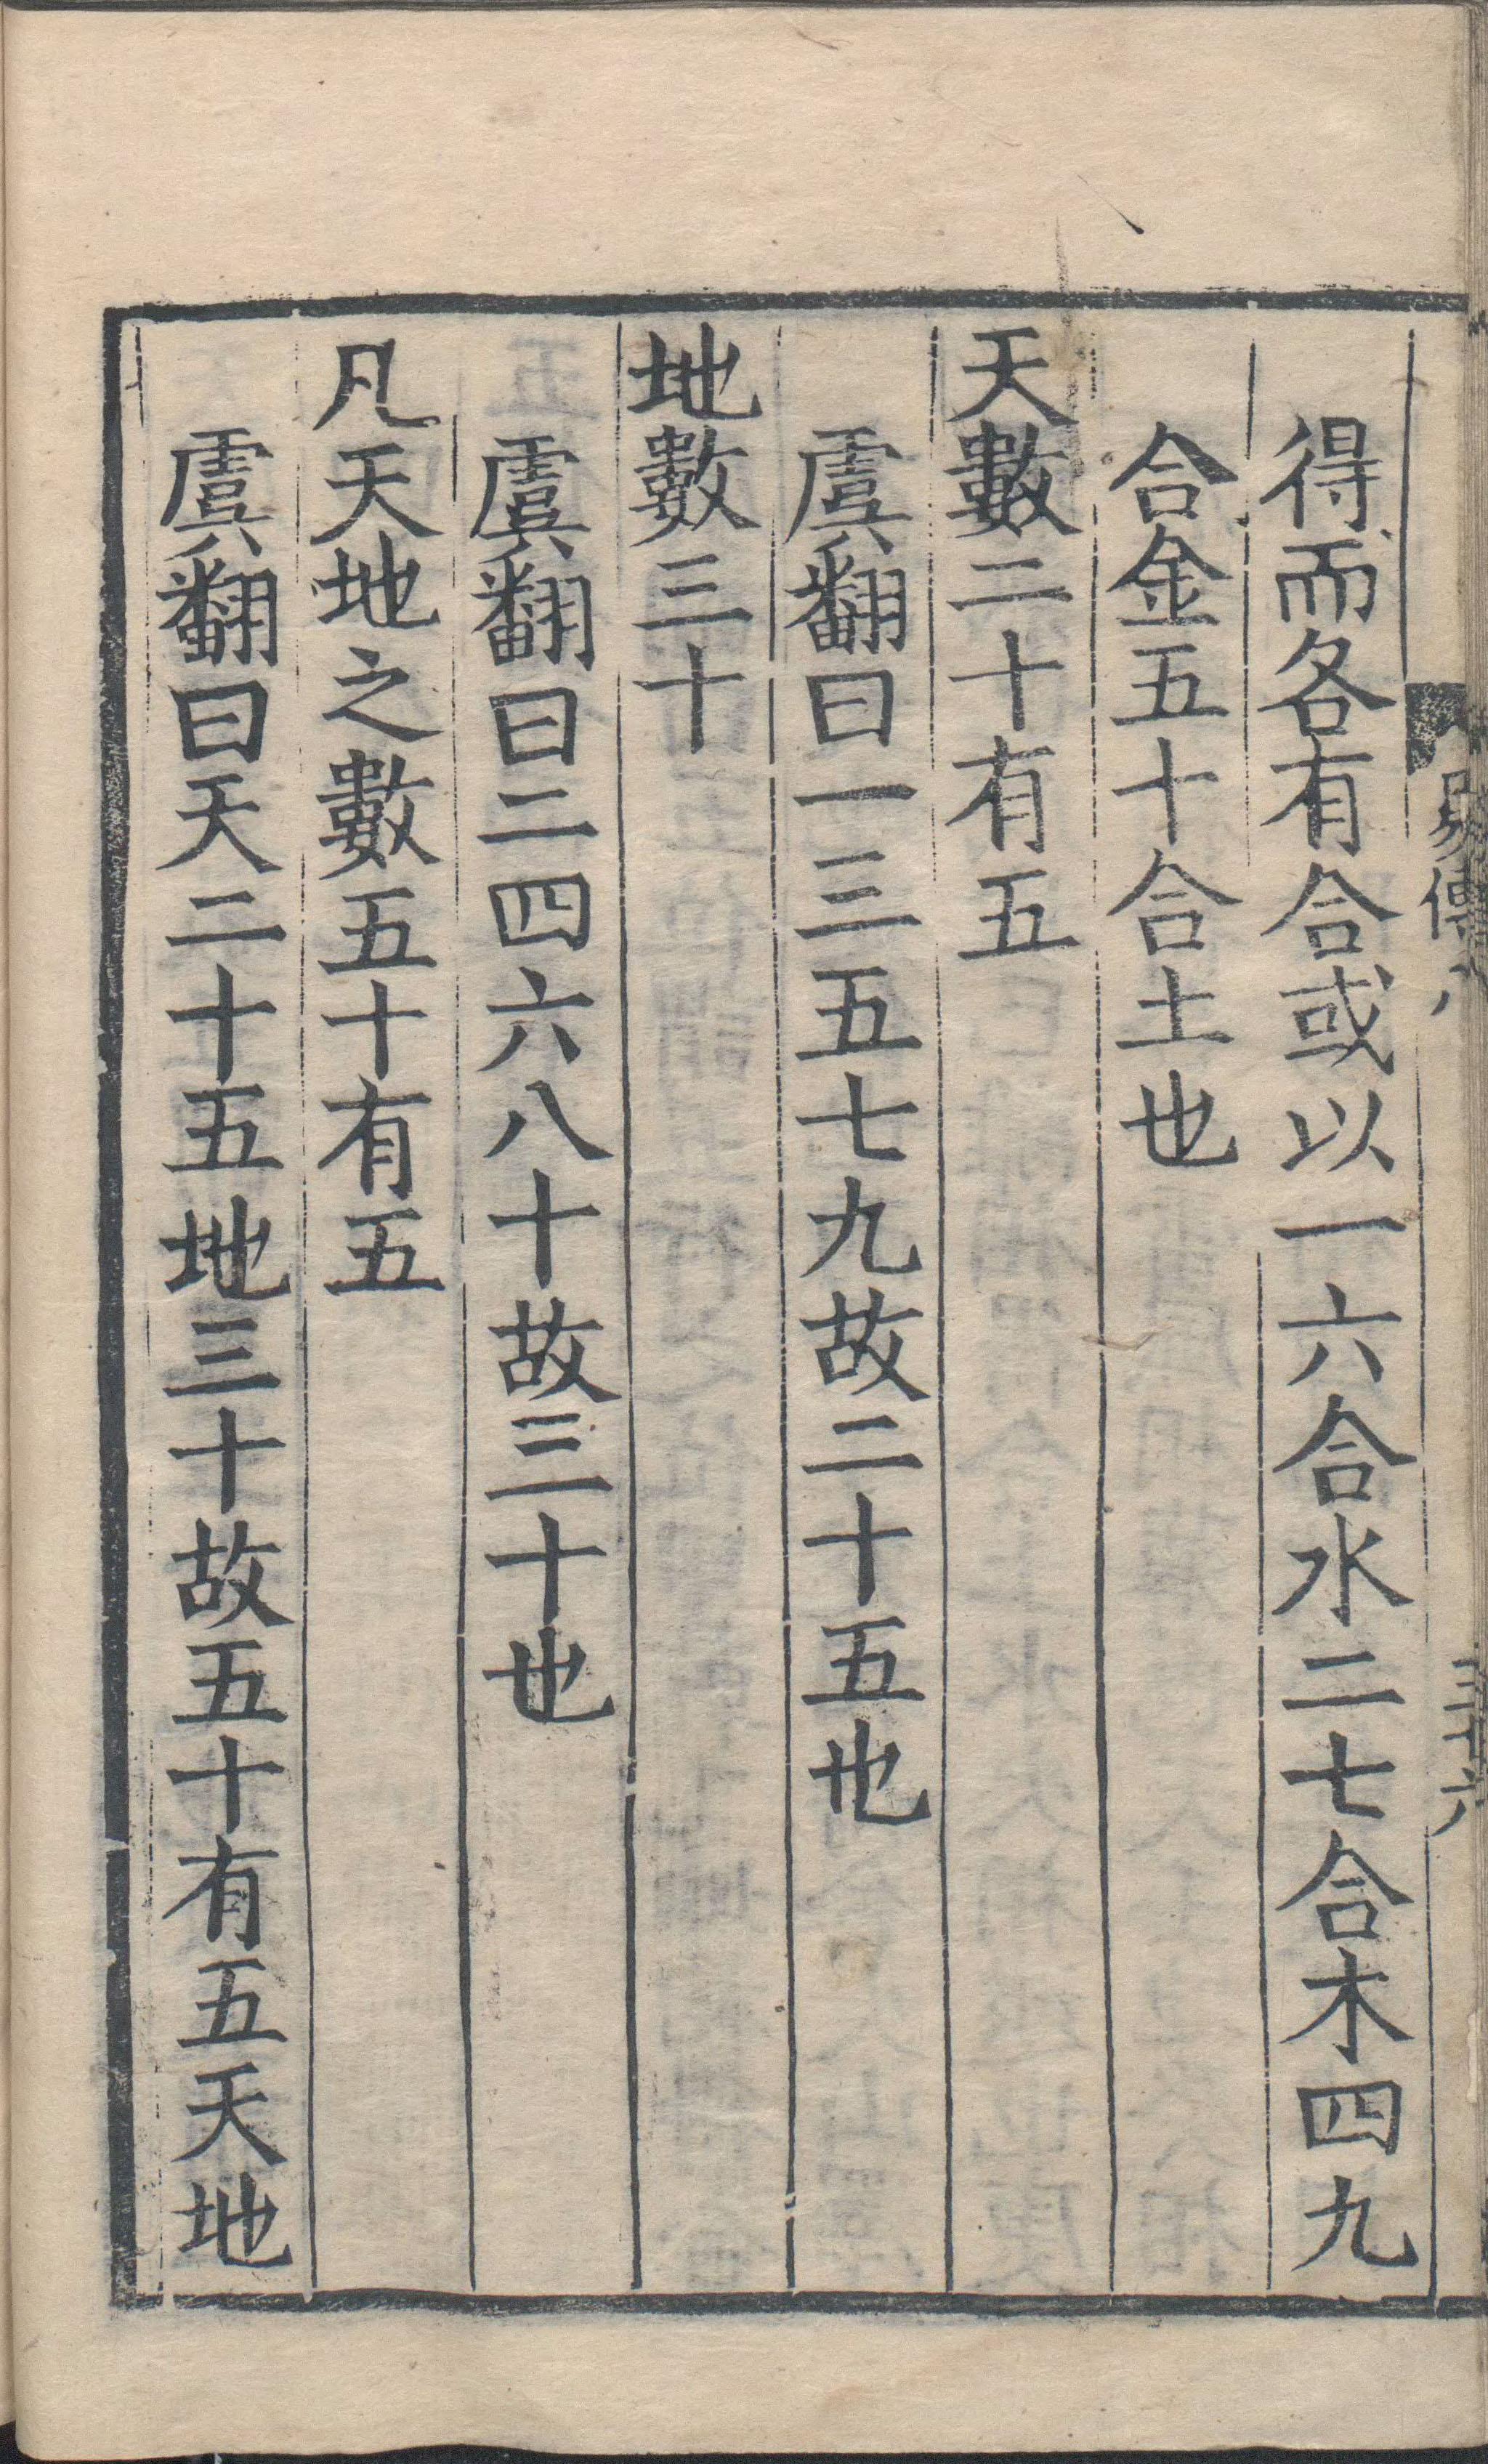 易傳八
三十六
得而各有合或以一六合水二七合木四九
合金五十合土也
天數二十有五
虞翻曰一三五七九故二十五也
地數三十
虞翻曰二四六八十故三十也
凡天地之數五十有五
虞翻曰天二十五地三十故五十有五天地